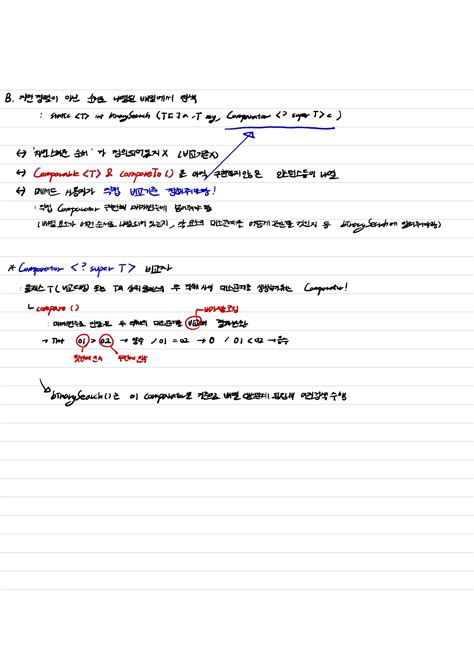 B. 자연정렬이 아닌 순서로 나열된 배열에서 검색
: static <T> int binarySearch (T[] a, T key, Comparator <? super T> c)
↔ '자연스러운 순서'가 정의되어있지 X (비교기준X)
↔ Comparable<T> & compareTo()은 아직 구현되지 않은 인스턴스들의 나열
↔ 메서드 사용자가 직접 비교기준 정해줘야함!
: 직접 Comparator 구현해 매개변수에 넘어줘야 함
(배열 요소가 어떤 순서로 나열되어 있는지, 각 요소의 대소관계는 어떻게 판단할 것인지 등 binarySearch에 알려줘야함)
* Comparator <? super T> 비교자
: 클래스 T (비교대상) 또는 T의 상위 클래스의 두 객체 사이 대소관계를 Comparator!
└ compare()
비교
: 매개변수로 전달된 두 객체의 대소관계를 비교해 결과반환
→ int o1 > o2 → 양수 / o1 = o2 → 0 / o1 < o2 → 음수
첫번째 인수 두번째 인수
binarySearch()는 이 comparator를 기준으로 배열 이진검색 수행